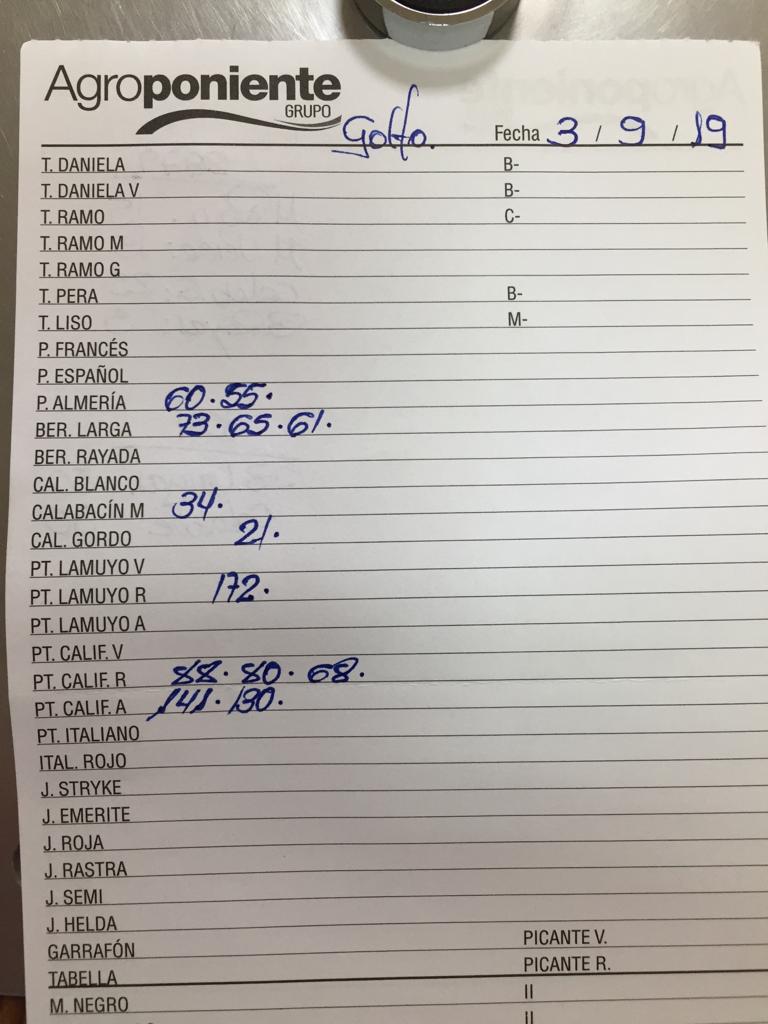 Agroponiente
GRUPO
Golfo. Fecha 3 / 9 / 19
T. DANIELA B-
T. DANIELA V B-
T. RAMO C-
T. RAMO M
T. RAMO G
T. PERA B-
T. LISO M-
P. FRANCÉS
P. ESPAÑOL
P. ALMERÍA 60.55.
BER. LARGA 73.65.61.
BER. RAYADA
CAL. BLANCO
CALABACÍN M 34.
CAL. GORDO 21.
PT. LAMUYO V
PT. LAMUYO R 172.
PT. LAMUYO A
PT. CALIF. V
PT. CALIF. R 88.80.68.
PT. CALIF. A 141.130.
PT. ITALIANO
ITAL. ROJO
J. STRYKE
J. EMERITE
J. ROJA
J. RASTRA
J. SEMI
J. HELDA
GARRAFÓN PICANTE V.
TABELLA PICANTE R.
M. NEGRO II
II